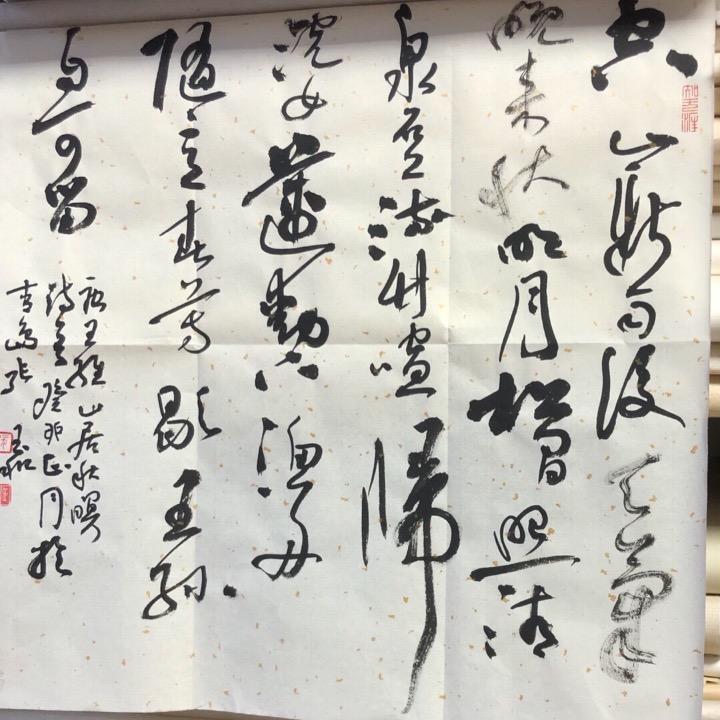 空山新雨後天氣
晚來秋明月松間照清
泉石上流竹喧歸
浣女蓮動下漁舟
隨意春芳歇王孫
自可留
唐王維山居秋暝
詩 正月於
青島張